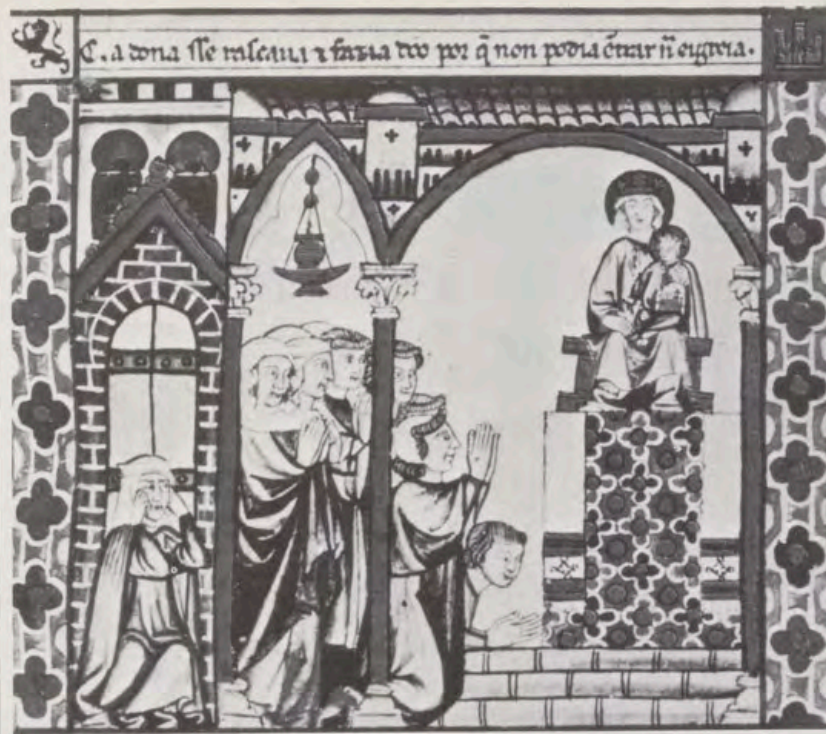 C. a dona sse rascaua ⁊ fazia doo por q̃ non podia ẽtrar ñ eigreia.